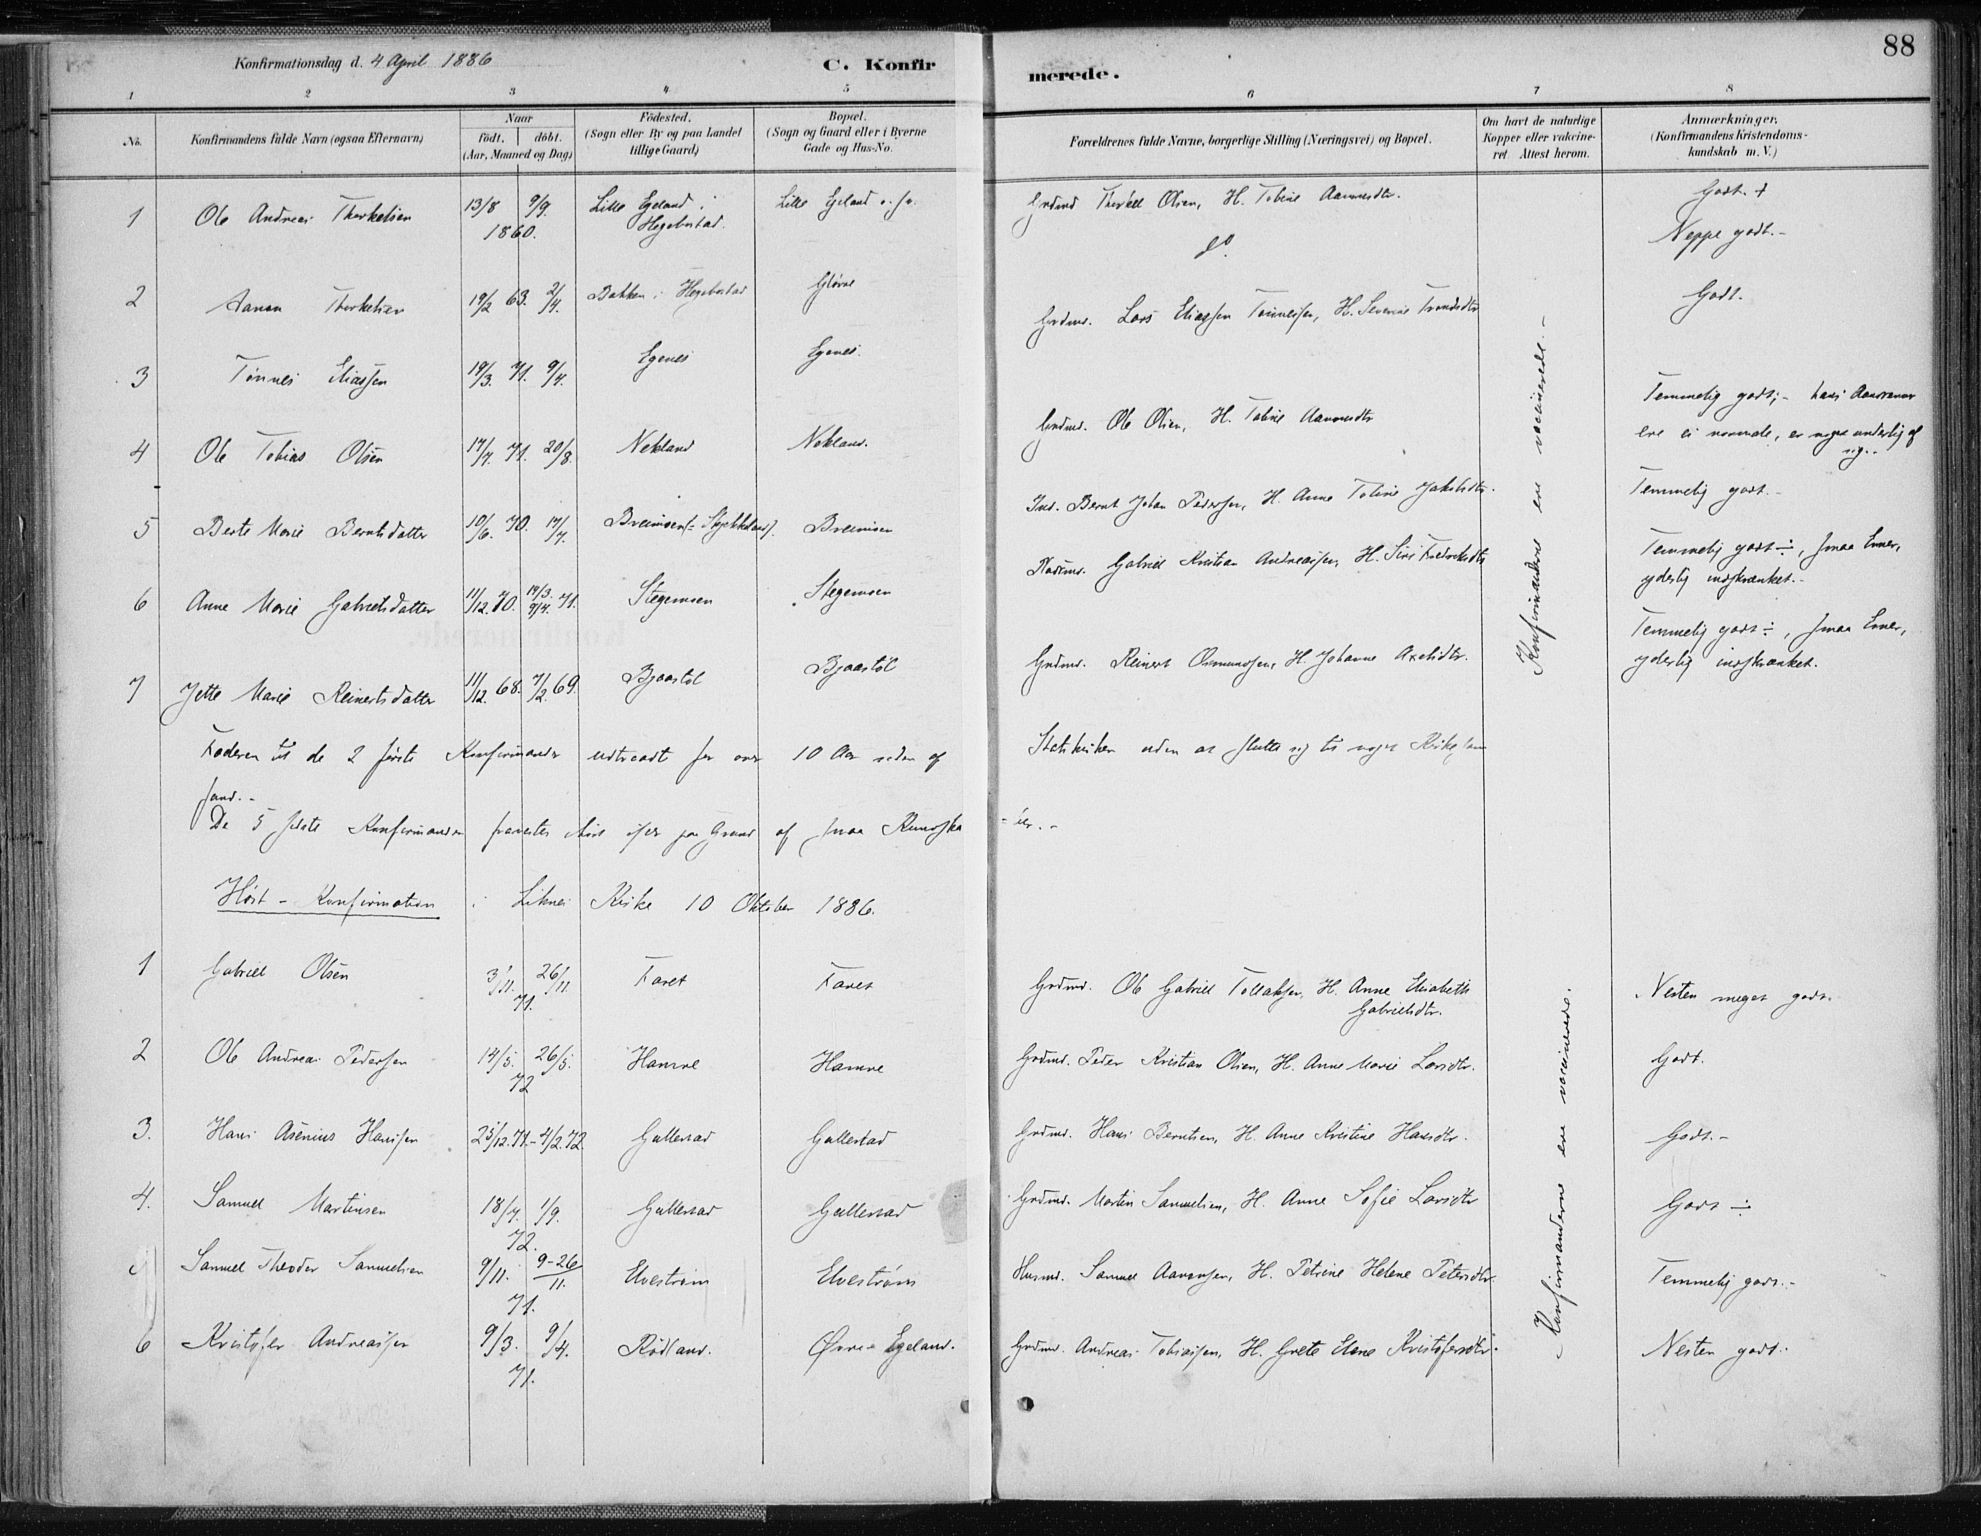 88
Konfirmationsdag d. 4 April 1886
C. Konfirmerede.
1 2 3 4 5 6 7 8
No.
Konfirmandens fulde Navn (ogsaa Efternavn)
Naar
födt. döbt.
(Aar, Maaned og Dag)
Födested.
(Sogn eller By og paa Landet
tillige Gaard)
Bopæl.
(Sogn og Gaard eller i Byerne
Gade og Hus-No.
Forældrenes fulde Navne, borgerlige Stilling (Næringsvei) og Bopæl.
Om havt de naturlige
Kopper eller vakcine-
ret. Attest herom.
Anmærkninger.
(Konfirmandens Kristendoms-
kundskab m. V.)
1 Ole Andreas Thorkelsen 13/8 9/9. 1860. Lille Egeland i Hegebostad. Lille Egeland Grdmd Thorkel Olsen, H. Tobine Aanensdtr. Godt. +
2 Aanen Thorkelsen 19/2 63. 2/4. Bakken i Hegebostad Gløvre do. Neppe godt. -
3 Tønnes Eliassen 19/3. 71. 9/4. Egenes Egenes. Grdmd. Lars Eliassen Tønnessen, H. Severine Trondsdtr Godt.
4 Ole Tobias Olsen 17/7. 71. 20/8. Nekland Nekland. Grdmd. Ole Olsen, H. Tobine Aanensdtr Temmelig godt; - hans Aandsevner
ere ei normale, er noget underlig af
sig. -
5 Berte Marie Berntsdatter 10/6. 70. 17/7. Breimoen (Støkkeland). Breimoen Ind. Bernt Johan Pedersen, H. Anne Tobine Jakobsdtr. Temmelig godt. -
6 Anne Marie Gabrielsdatter 11/12. 70. 19/3. 9/4. 71. Stegemoen Stegemoen Gabriel Kristian Andreassen, H. Siri Fredriksdtr Temmelig godt ÷, smaa Evner,
yderlig indskrænket. -
7 Jette Marie Reinertsdatter 11/12. 68. 7/2. 69. Bjaastøl Bjaastøl Grdmd. Reinert Osmundsen, H. Johanne Axelsdtr. Temmelig godt ÷, smaa Evner,
yderlig indskrænket.
Konfirmanderne ere vaccinerede. -
Faderen til de 2 første Konfirmander udtraadt for over 10 Aar siden af Statskirken uden at slutte sig til noget Kirkesam
fund. -
De 5 første Konfirmander paa Grund af smaa Kundska - ber. -
Høst - Konfirmation i Liknes Kirke 10 Oktober 1886.
1 Gabriel Olsen 3/11. 26/11. 71. Faret Faret Grdmd. Ole Gabriel Tollaksen, H. Anne Elisabeth
Gabrielsdtr. Nesten meget godt.
2 Ole Andreas Pedersen 14/5. 26/5. 72 Hamre Hamre Grdmd. Peder Kristian Olsen, H. Anne Marie Larsdtr. Godt.
3. Hans Asenius Hansen 25/12. 71. - 4/2. 72. Gullestad Gullestad Grdmd. Hans Berntsen, H. Anne Kristine Hansdtr. Godt. -
4. Samuel Martinsen 18/7. 1/9. 72. Gullestad Gullestad Grdmd. Martin Samuelsen, H. Anne Sofie Larsdtr Godt ÷
5 Samuel Theodor Samuelsen 9/11. 9-26/11. 71. Elvestrøm Elvestrøm Husmd. Samuel Aanensen, H. Petrine Helene Petersdtr. Temmelig godt. -
6 Kristofer Andreassen 9/3. 9/4. 71. Rødland. Øvre Egeland. Grdmd. Andreas Tobiassen, H. Grete Elene Kristofersdtr. Nesten godt.
Konfirmanderne ere vaccinerede.